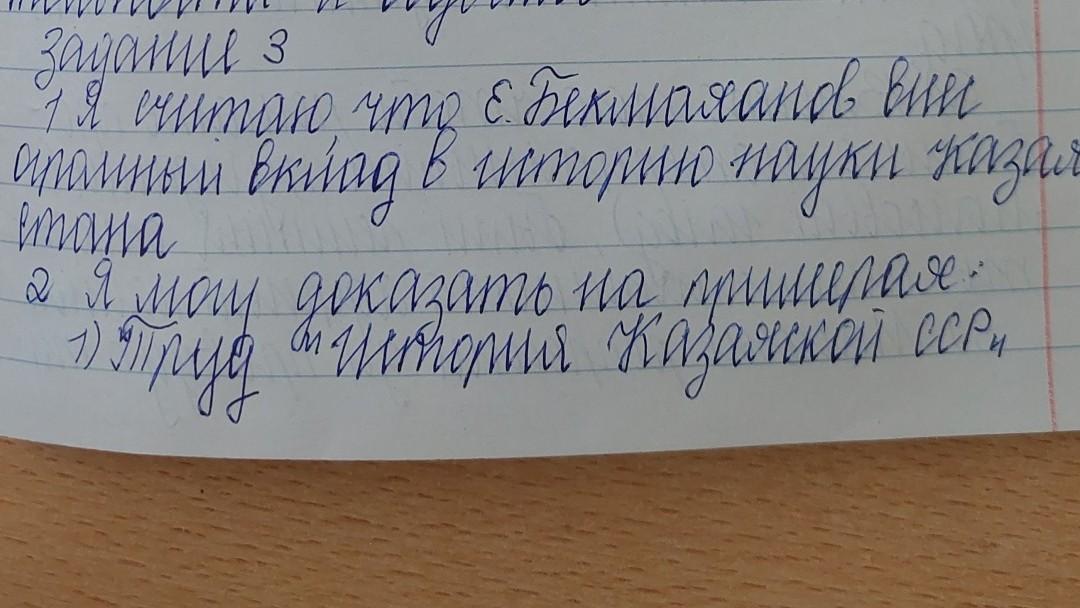 Задание 3
1 Я считаю, что Е. Бекмаханов внес
огромный вклад в историю науки Казах
стана
2 Я могу доказать на примерах:
1) Труд "История Казахской ССР"